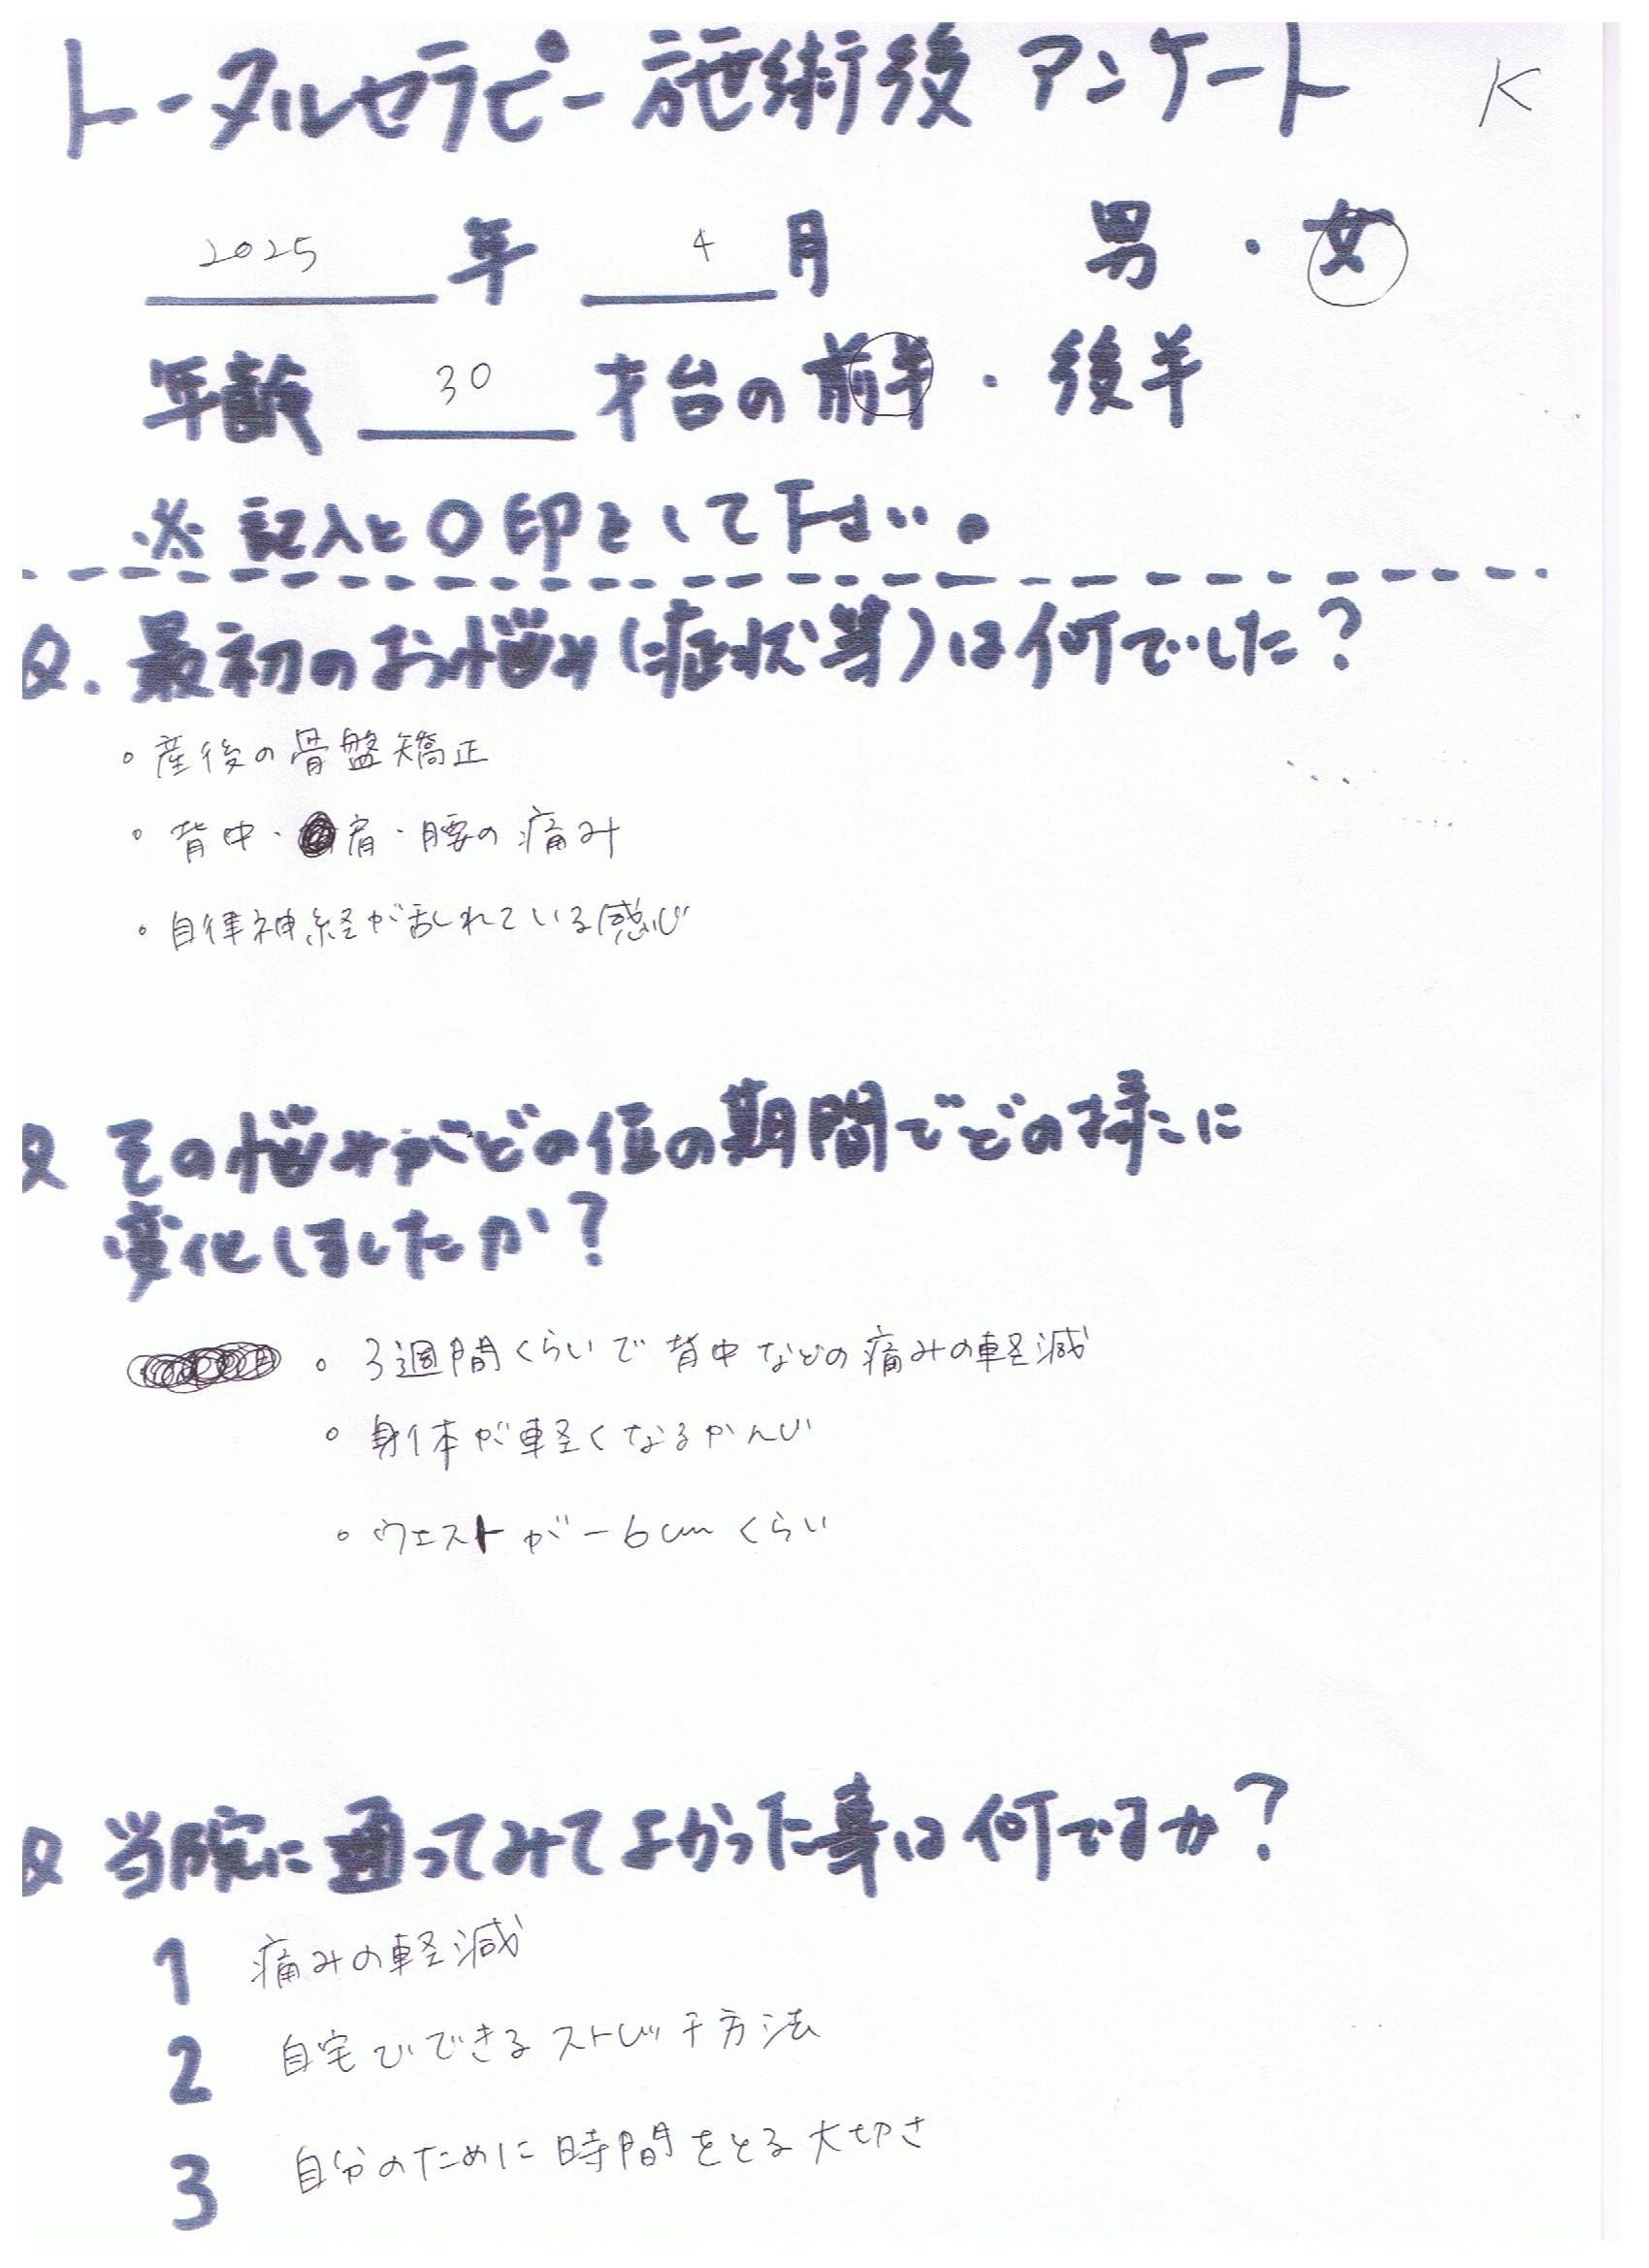 トータルセラピー施術後アンケート K
2025 年 4 月 男・女
年齢 30 才台の前半・後半
※記入と〇印をして下さい。
Q.最初のお悩み(症状等)は何でした?
・産後の骨盤矯正
・背中・肩・腰の痛み
・自律神経が乱れている感じ
Q その悩みがどの位の期間でどの様に
変化しましたか?
・3週間くらいで背中などの痛みの軽減
・身体が軽くなるかんじ
・ウエストが-6cmくらい
Q 当院に通ってみてよかった事は何ですか?
1 痛みの軽減
2 自宅でできるストレッチ方法
3 自分のために時間をとる大切さ